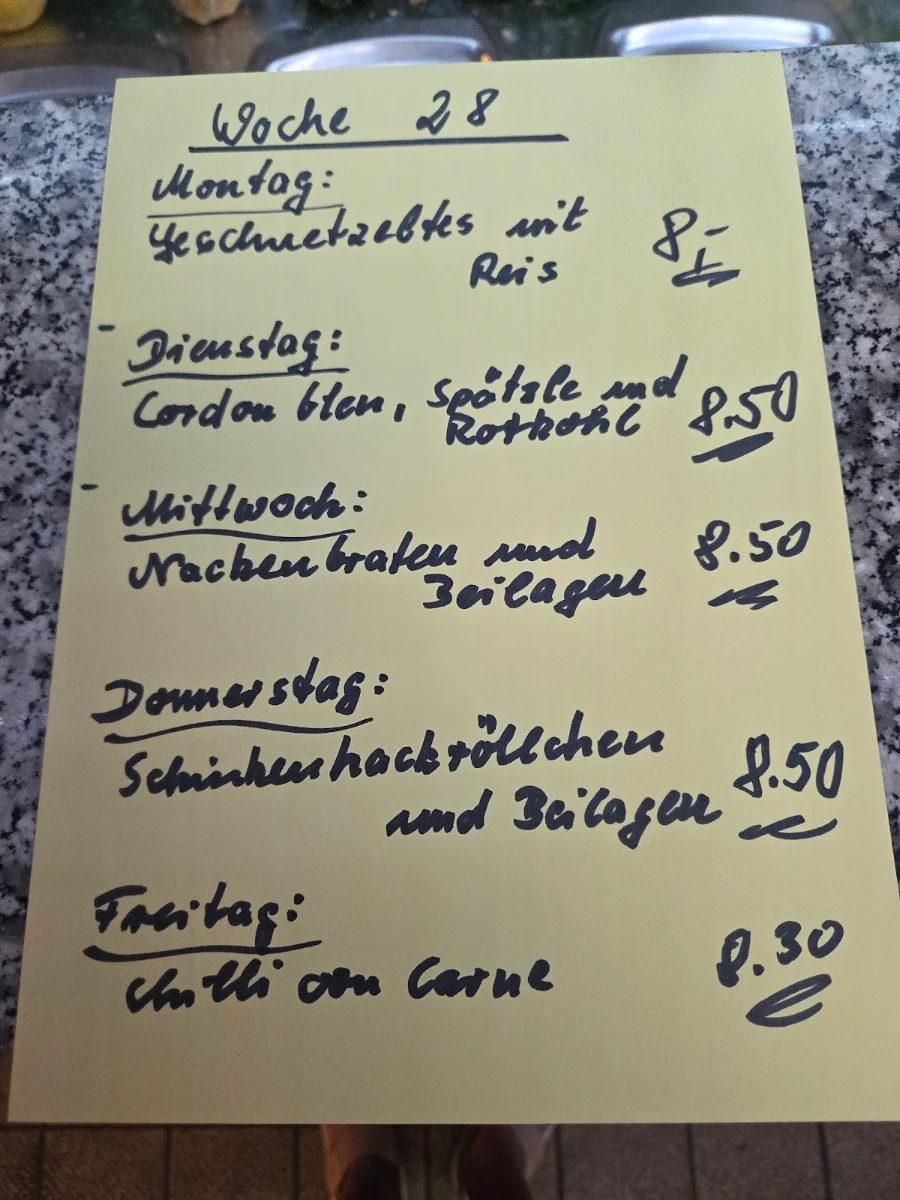 Woche 28
Montag:
Geschnetzeltes mit
Reis 8,-
- Dienstag:
Cordon bleu, Spätzle und
Rotkohl 8.50
- Mittwoch:
Nackenbraten und 8.50
Beilagen
Donnerstag:
Schinkenhackröllchen 8.50
und Beilagen
Freitag:
Chilli con Carne 8.30